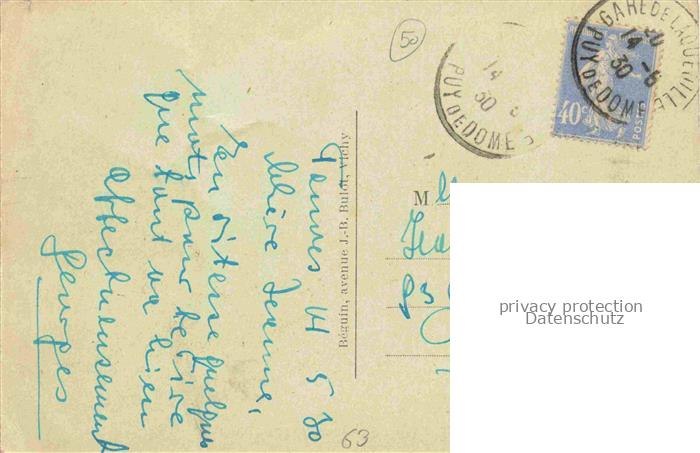 50
GARE DE LAQUEUILLE
14 -6
30
PUY DE DOME
14
30
PUY DE DOME
40c
POSTES
Béguin, avenue J.-B. Bulot, Vichy
14 5 30
Chère Jeanne,
En vitesse quelques
mots pour te dire
que tout va bien
Affectueusement
Georges
M
63
privacy protection
Datenschutz